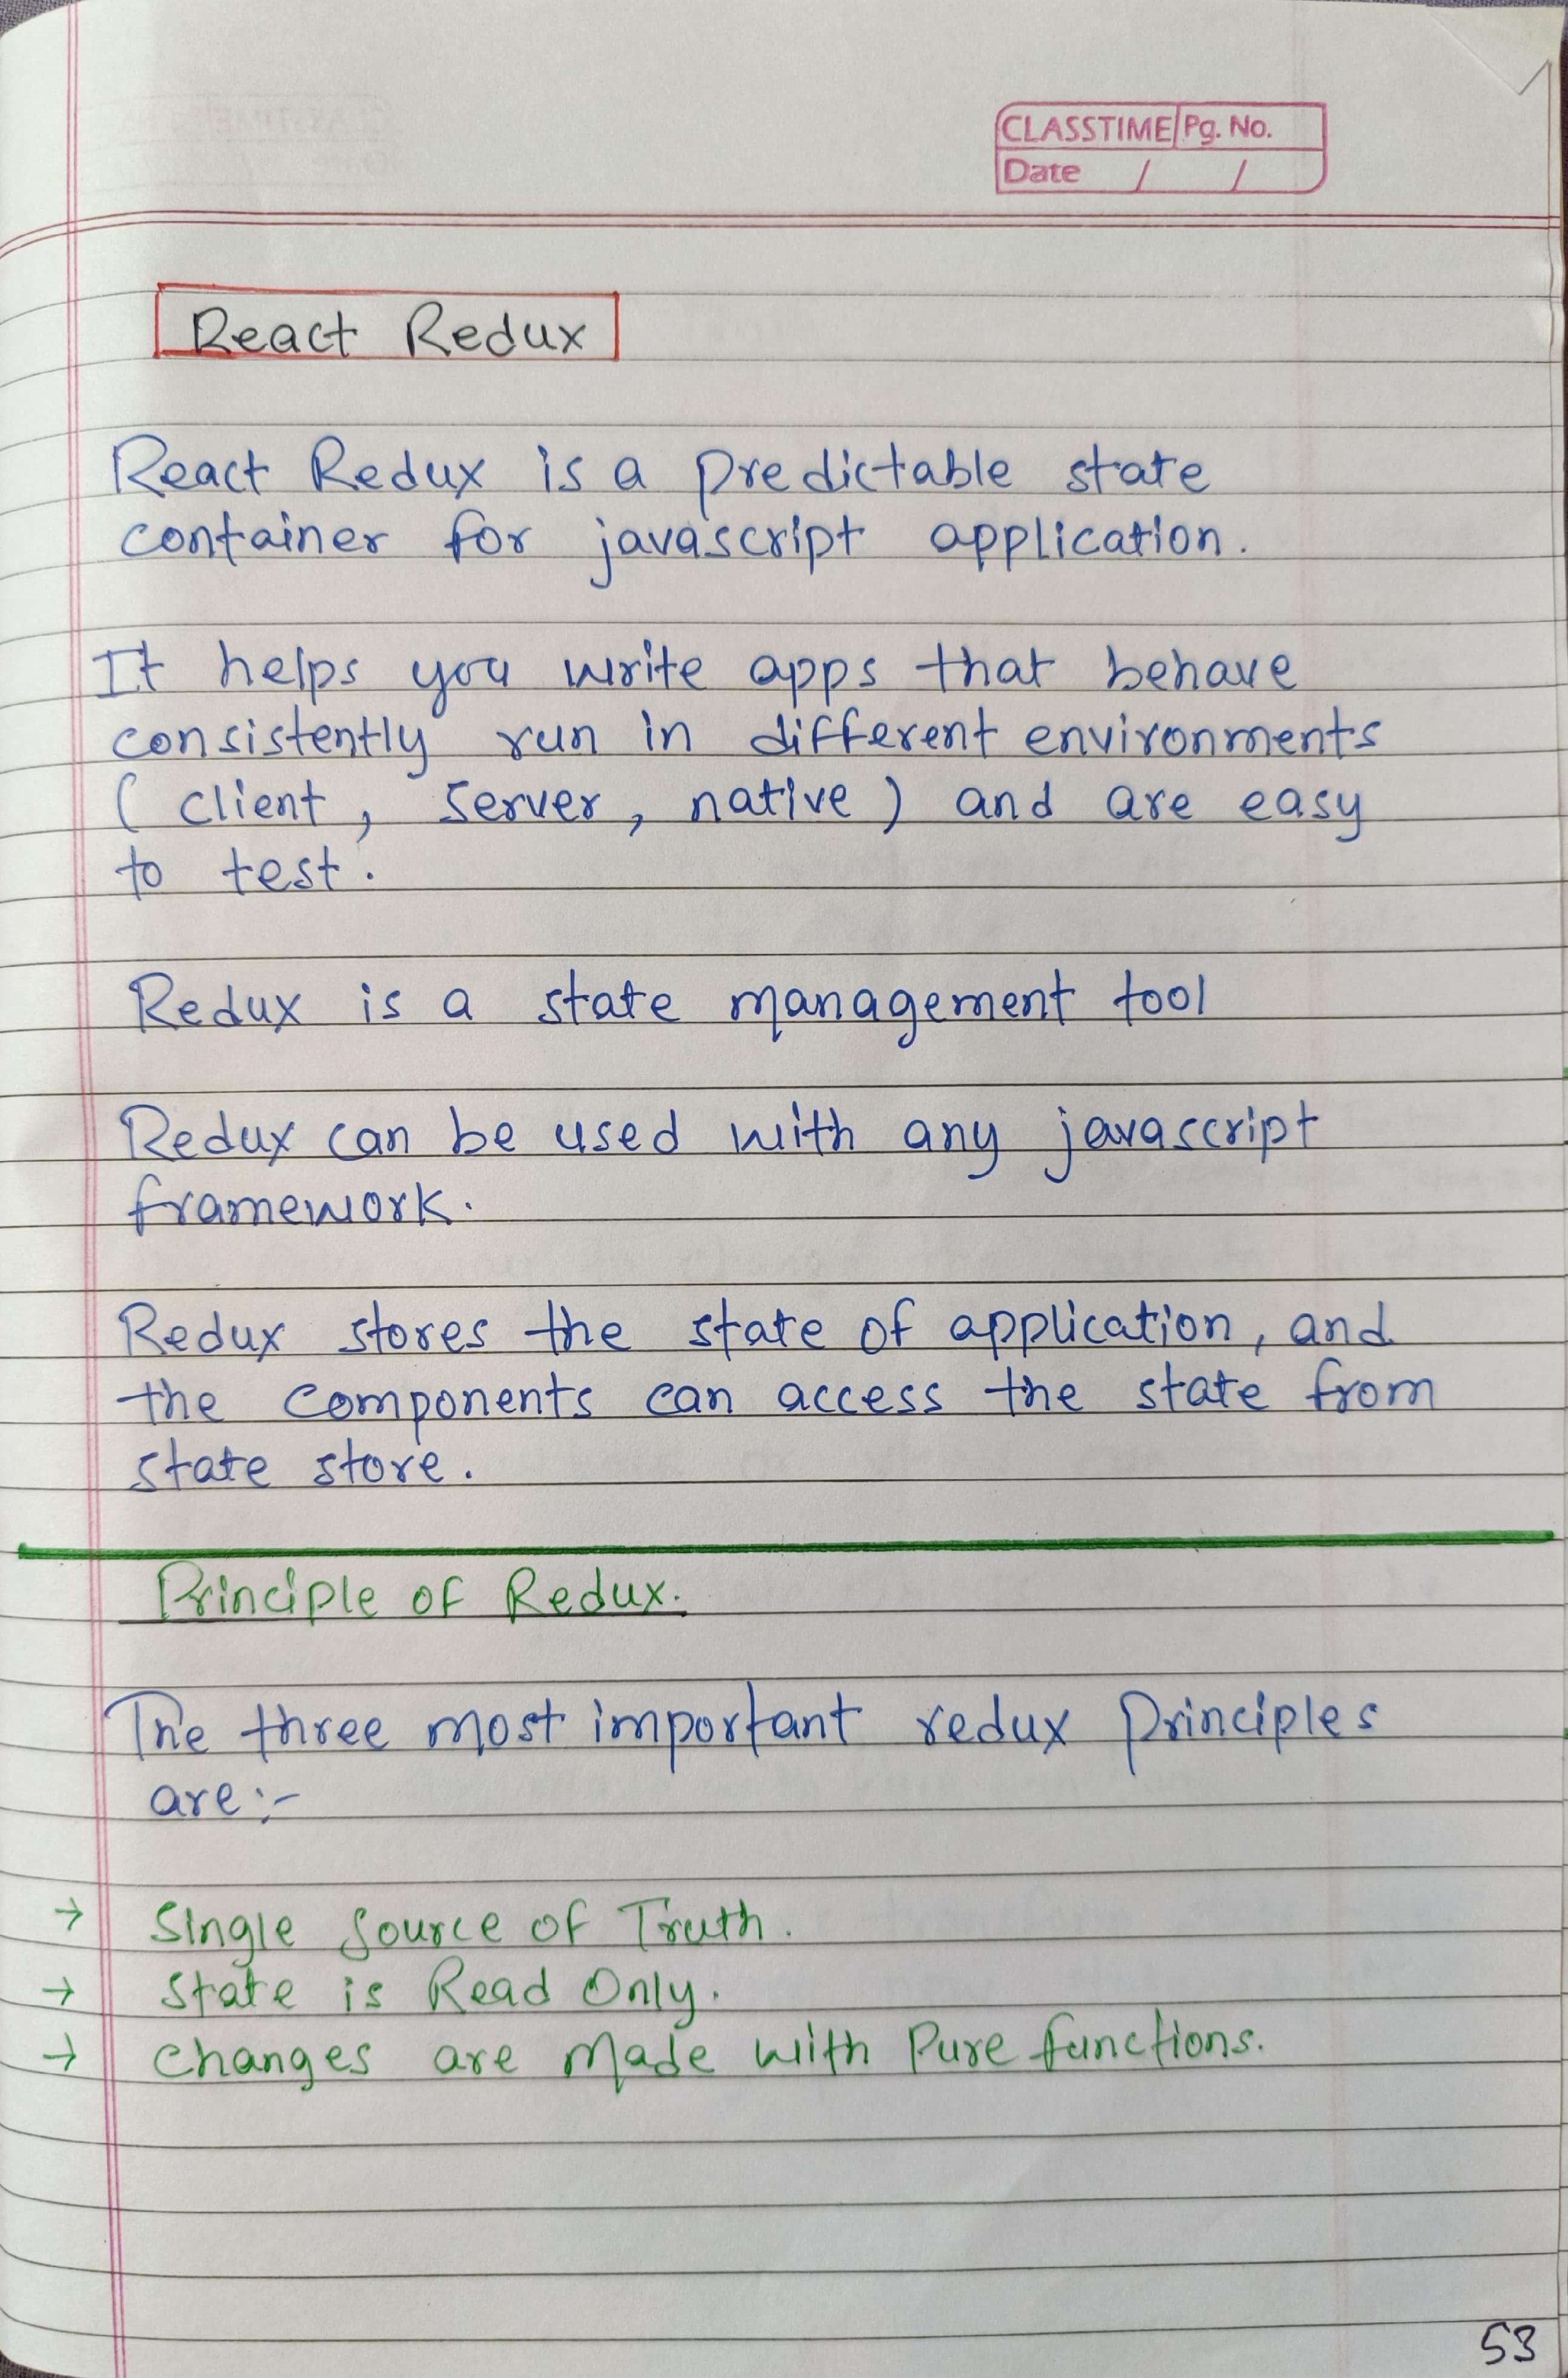 CLASSTIME Pg. No.
Date / /
React Redux
React Redux is a predictable state
container for javascript application.
It helps you write apps that behave
consistently run in different environments
( client, server, native ) and are easy
to test.
Redux is a state management tool
Redux can be used with any javascript
framework.
Redux stores the state of application, and
the components can access the state from
state store.
Principle of Redux.
The three most important redux Principles
are:-
→ Single Source of Truth.
→ State is Read Only.
→ Changes are Made with Pure functions.
53